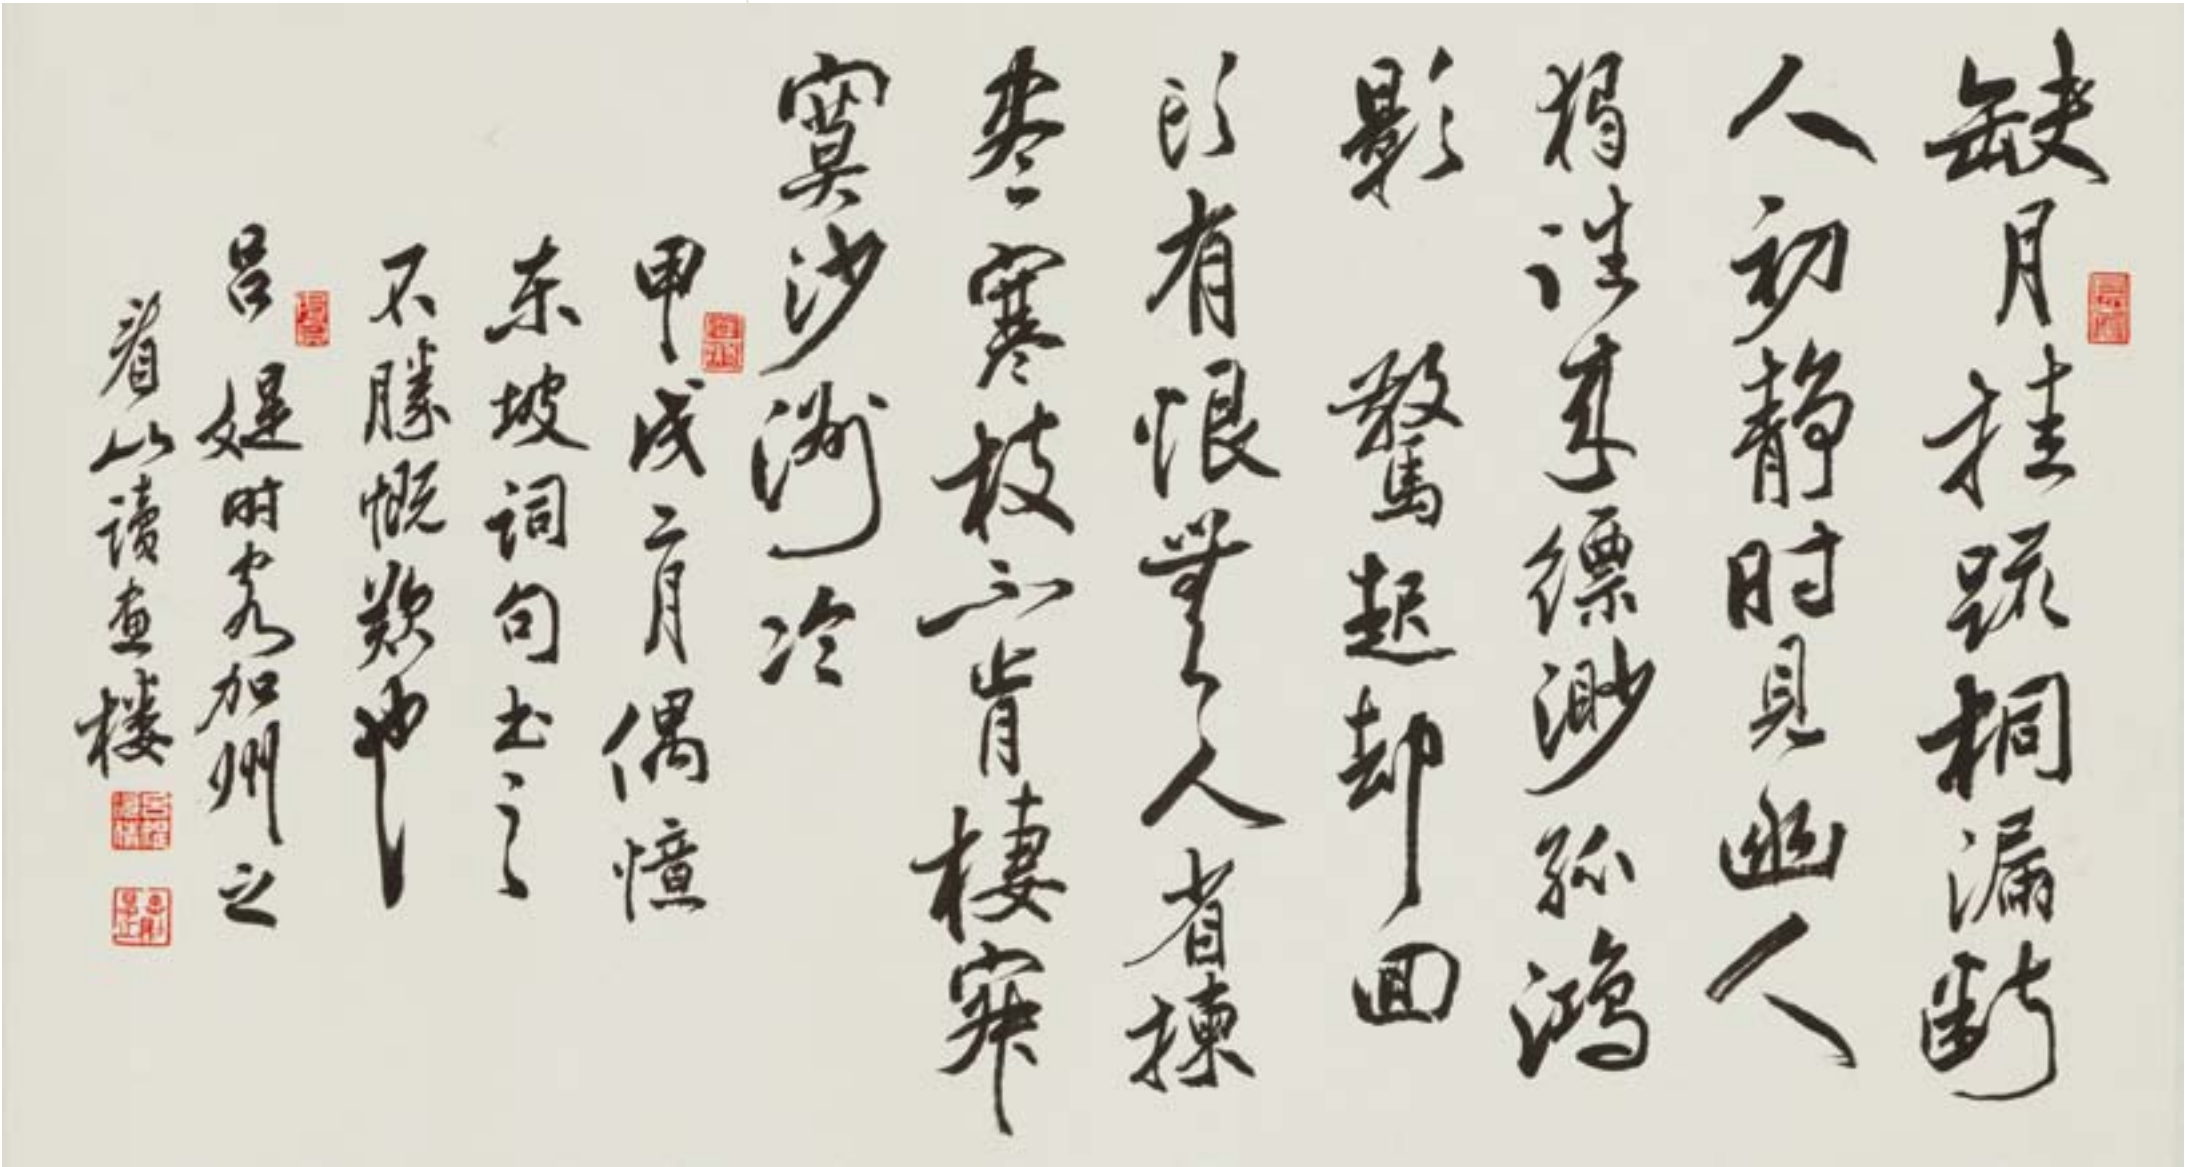 缺月挂疏桐漏断
人初静时見幽人
獨往来縹渺孤鴻
影 驚起却回
头有恨無人省揀
尽寒枝不肯棲寂
寞沙洲冷
甲戌二月偶憶
东坡詞句书之
不勝慨歎也
吕媞时客加州之
看山讀画楼